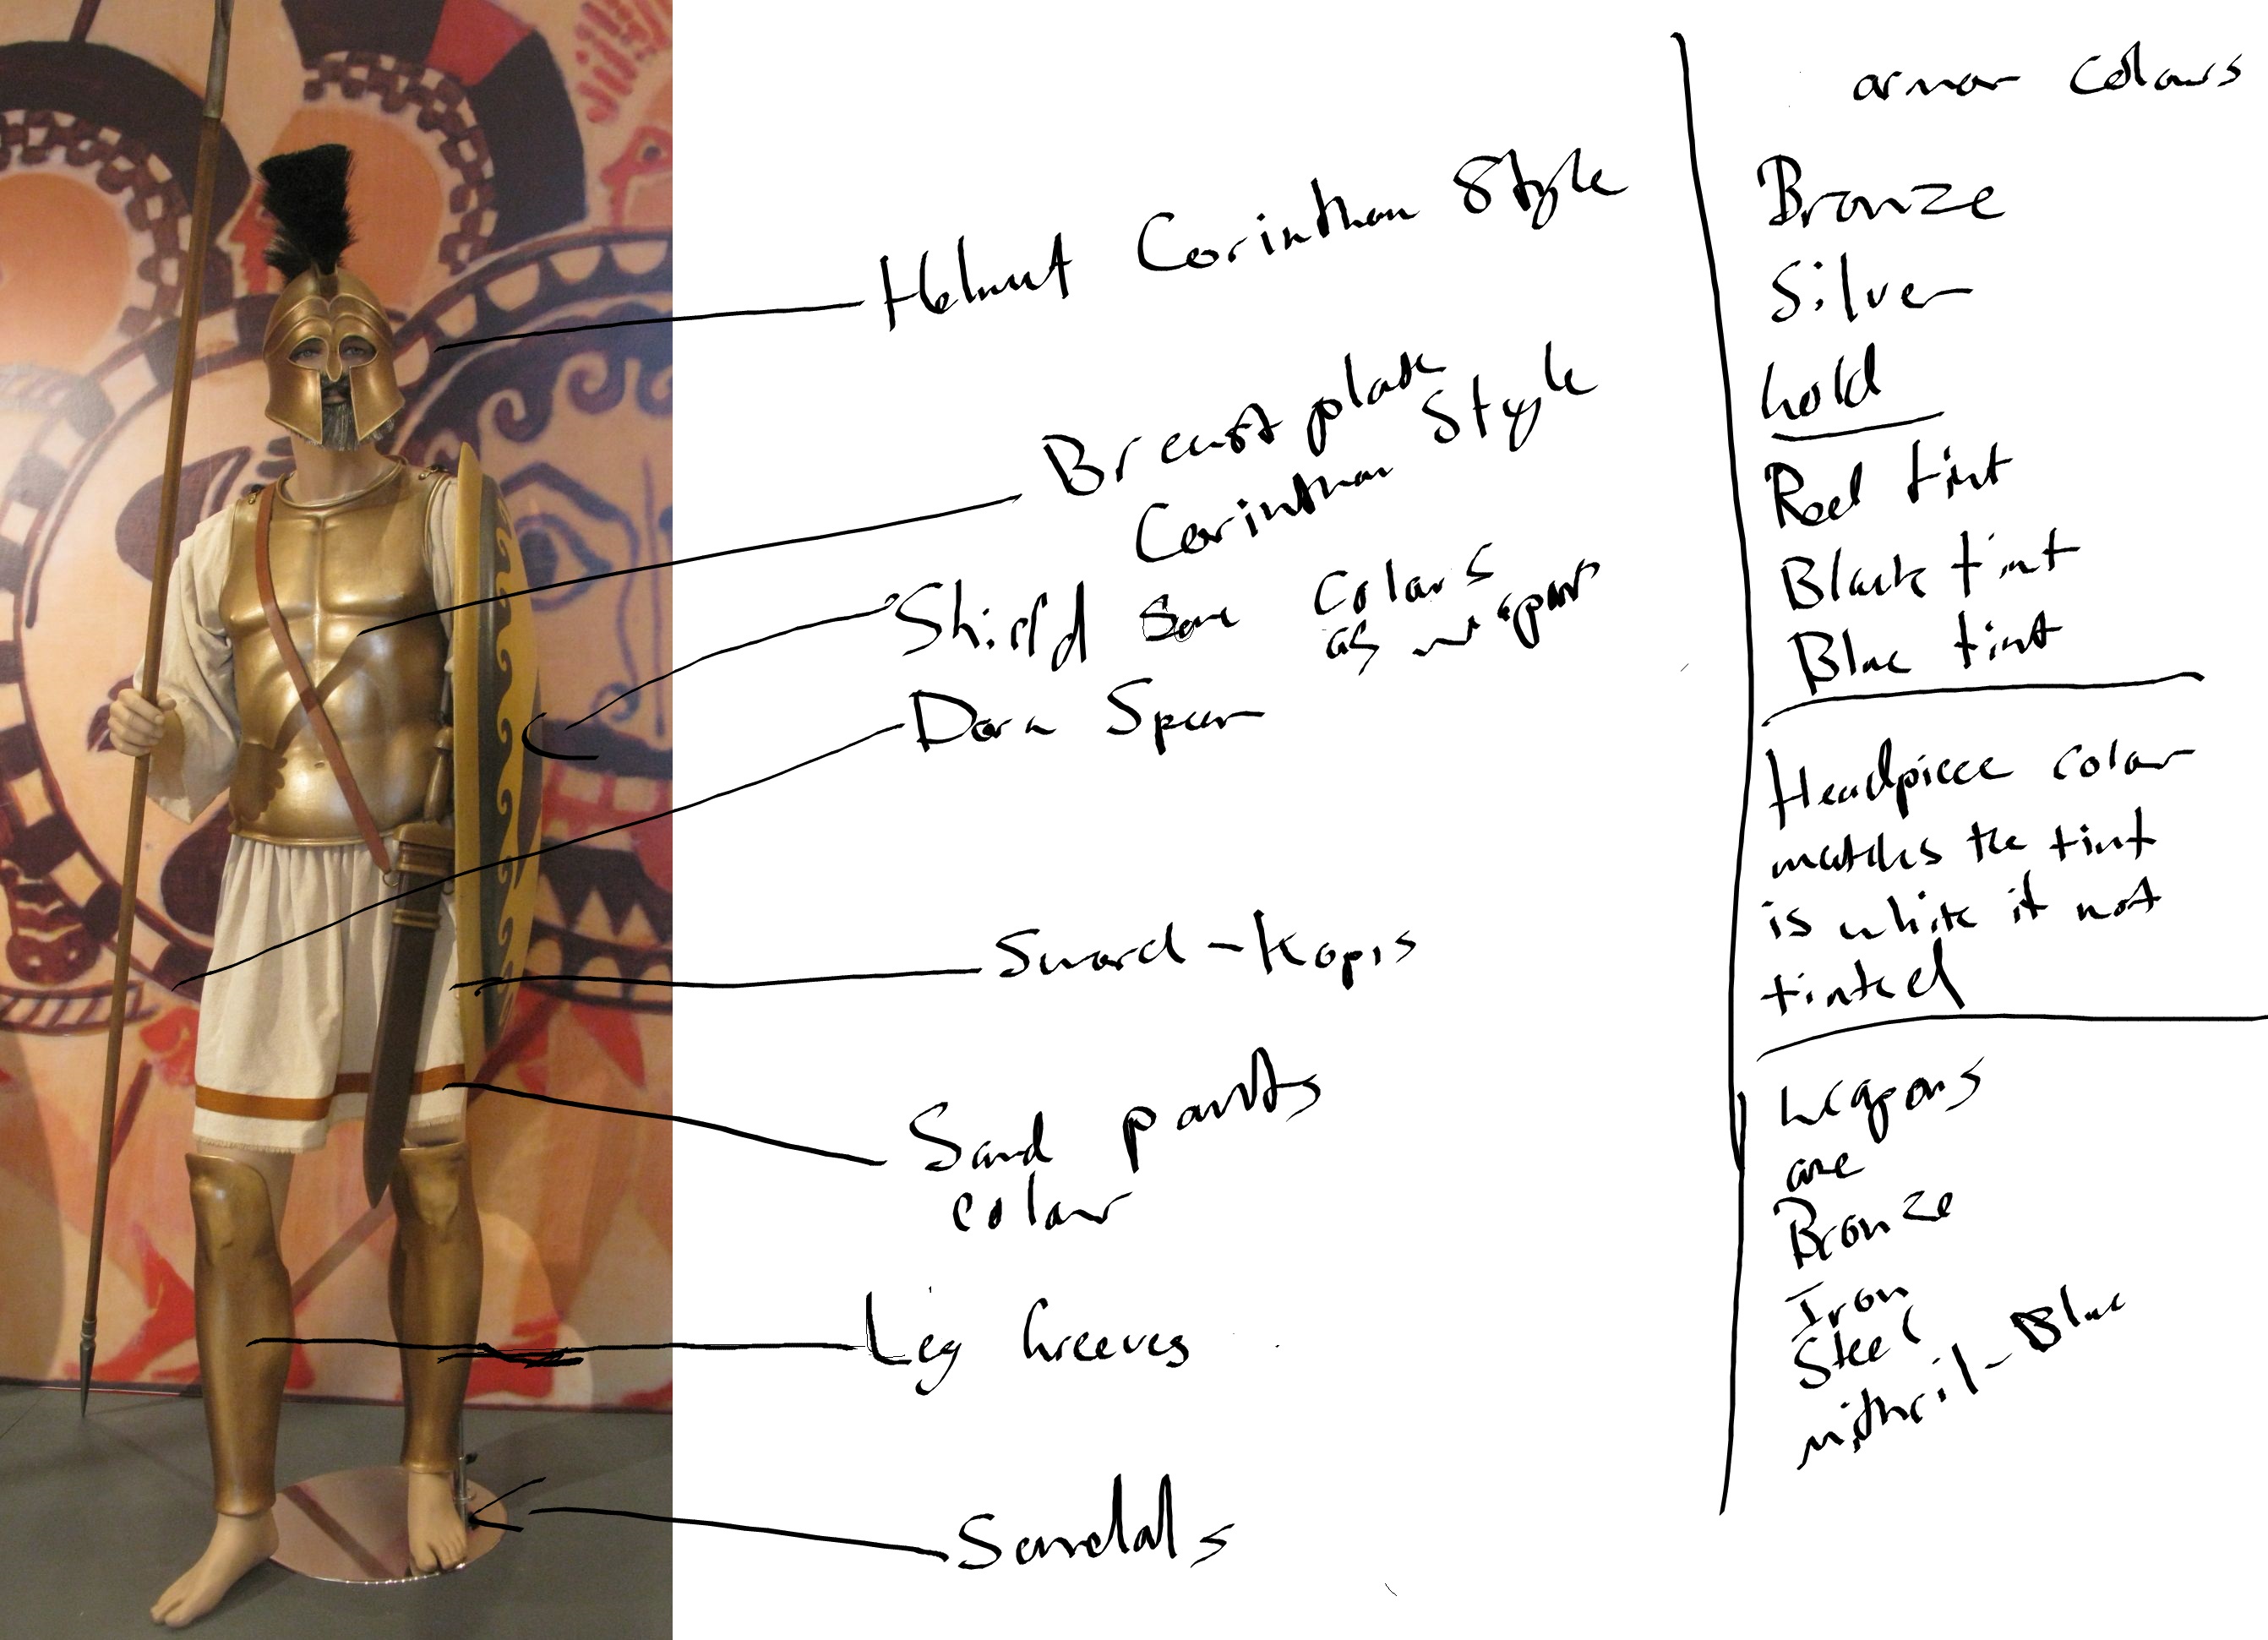 Helmut Corinthian Style
Breast plate
Corinthian Style
Shield Same Colours
as weapons
Dora Spear
Sword - Kopis
Sand pants
colour
Leg Greeves
Sandals
armor Colours
Bronze
Silver
Gold
Red tint
Black tint
Blue tint
Headpiece colour
matches the tint
is white if not
tinted
Weapons
are
Bronze
Iron
Steel
mithril - Blue